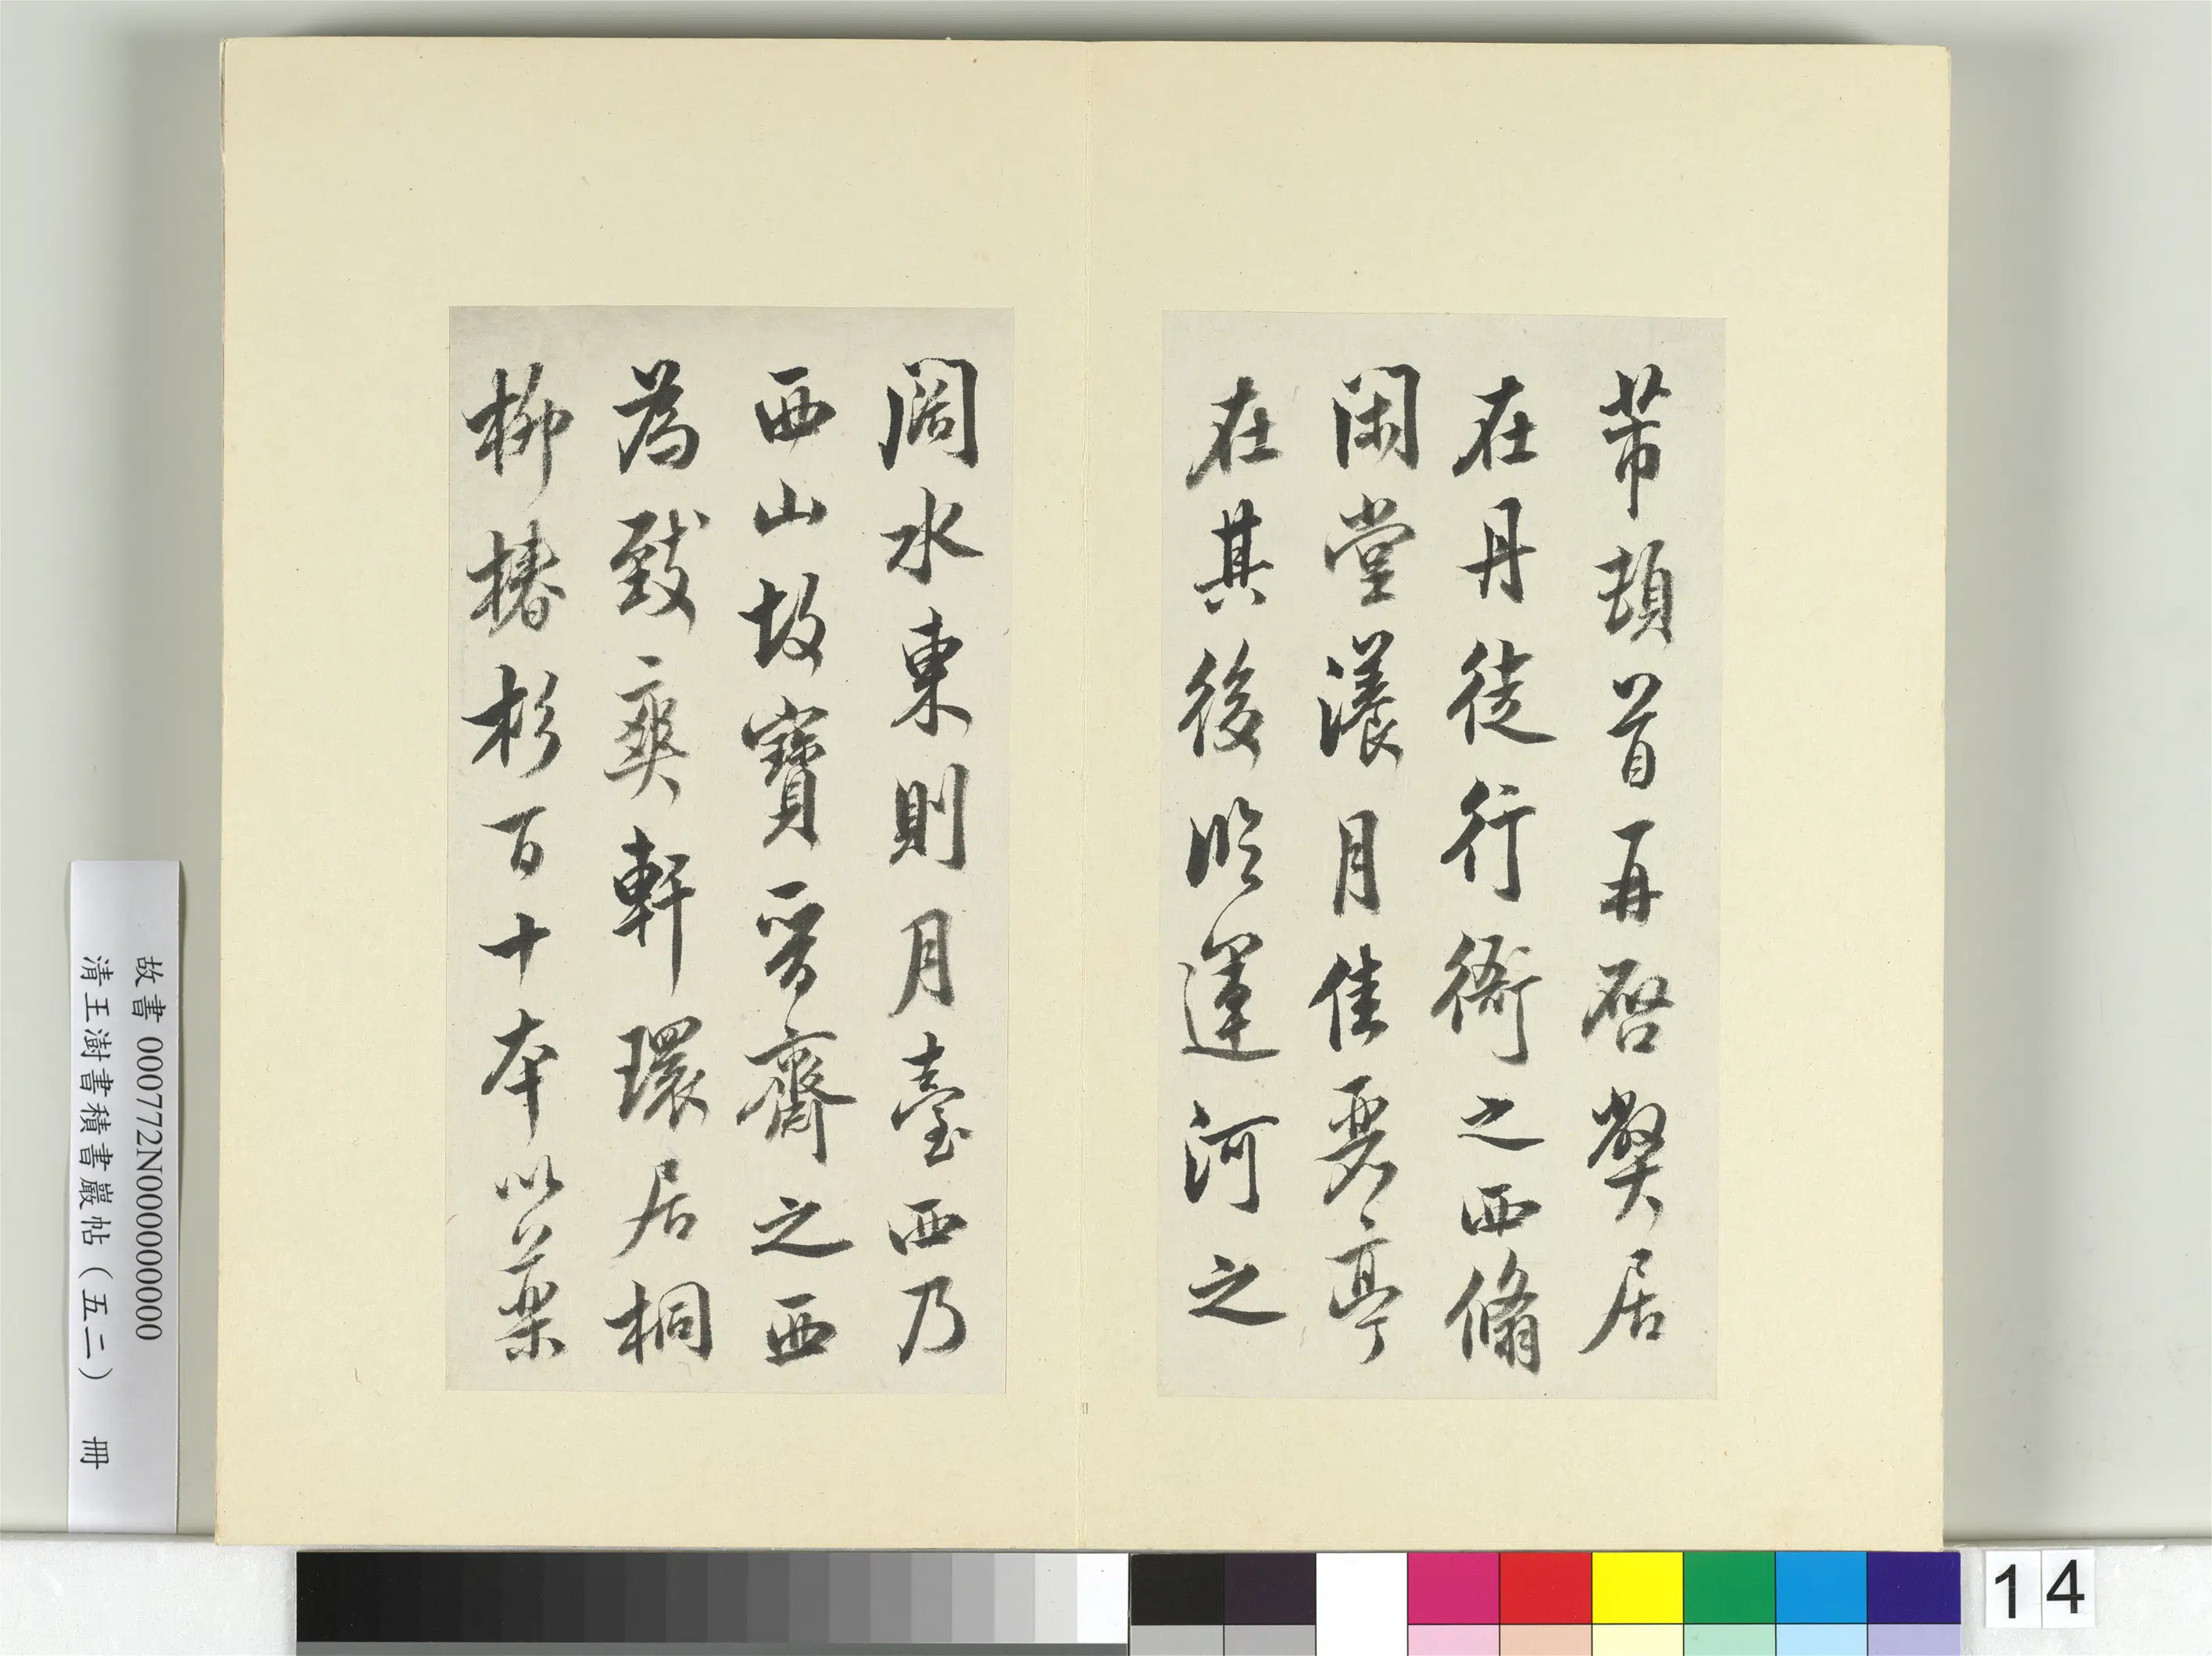 芾頓首再啓弊居
在丹徒行衙之西翛
閑堂漾月佳麗亭
在其後臨運河之
闊水東則月臺西乃
西山故寶晉齋之西
為致爽軒環居桐
柳椿杉百十本以藥
故書 000772N000000000
清王澍書積書巖帖(五二) 冊
14